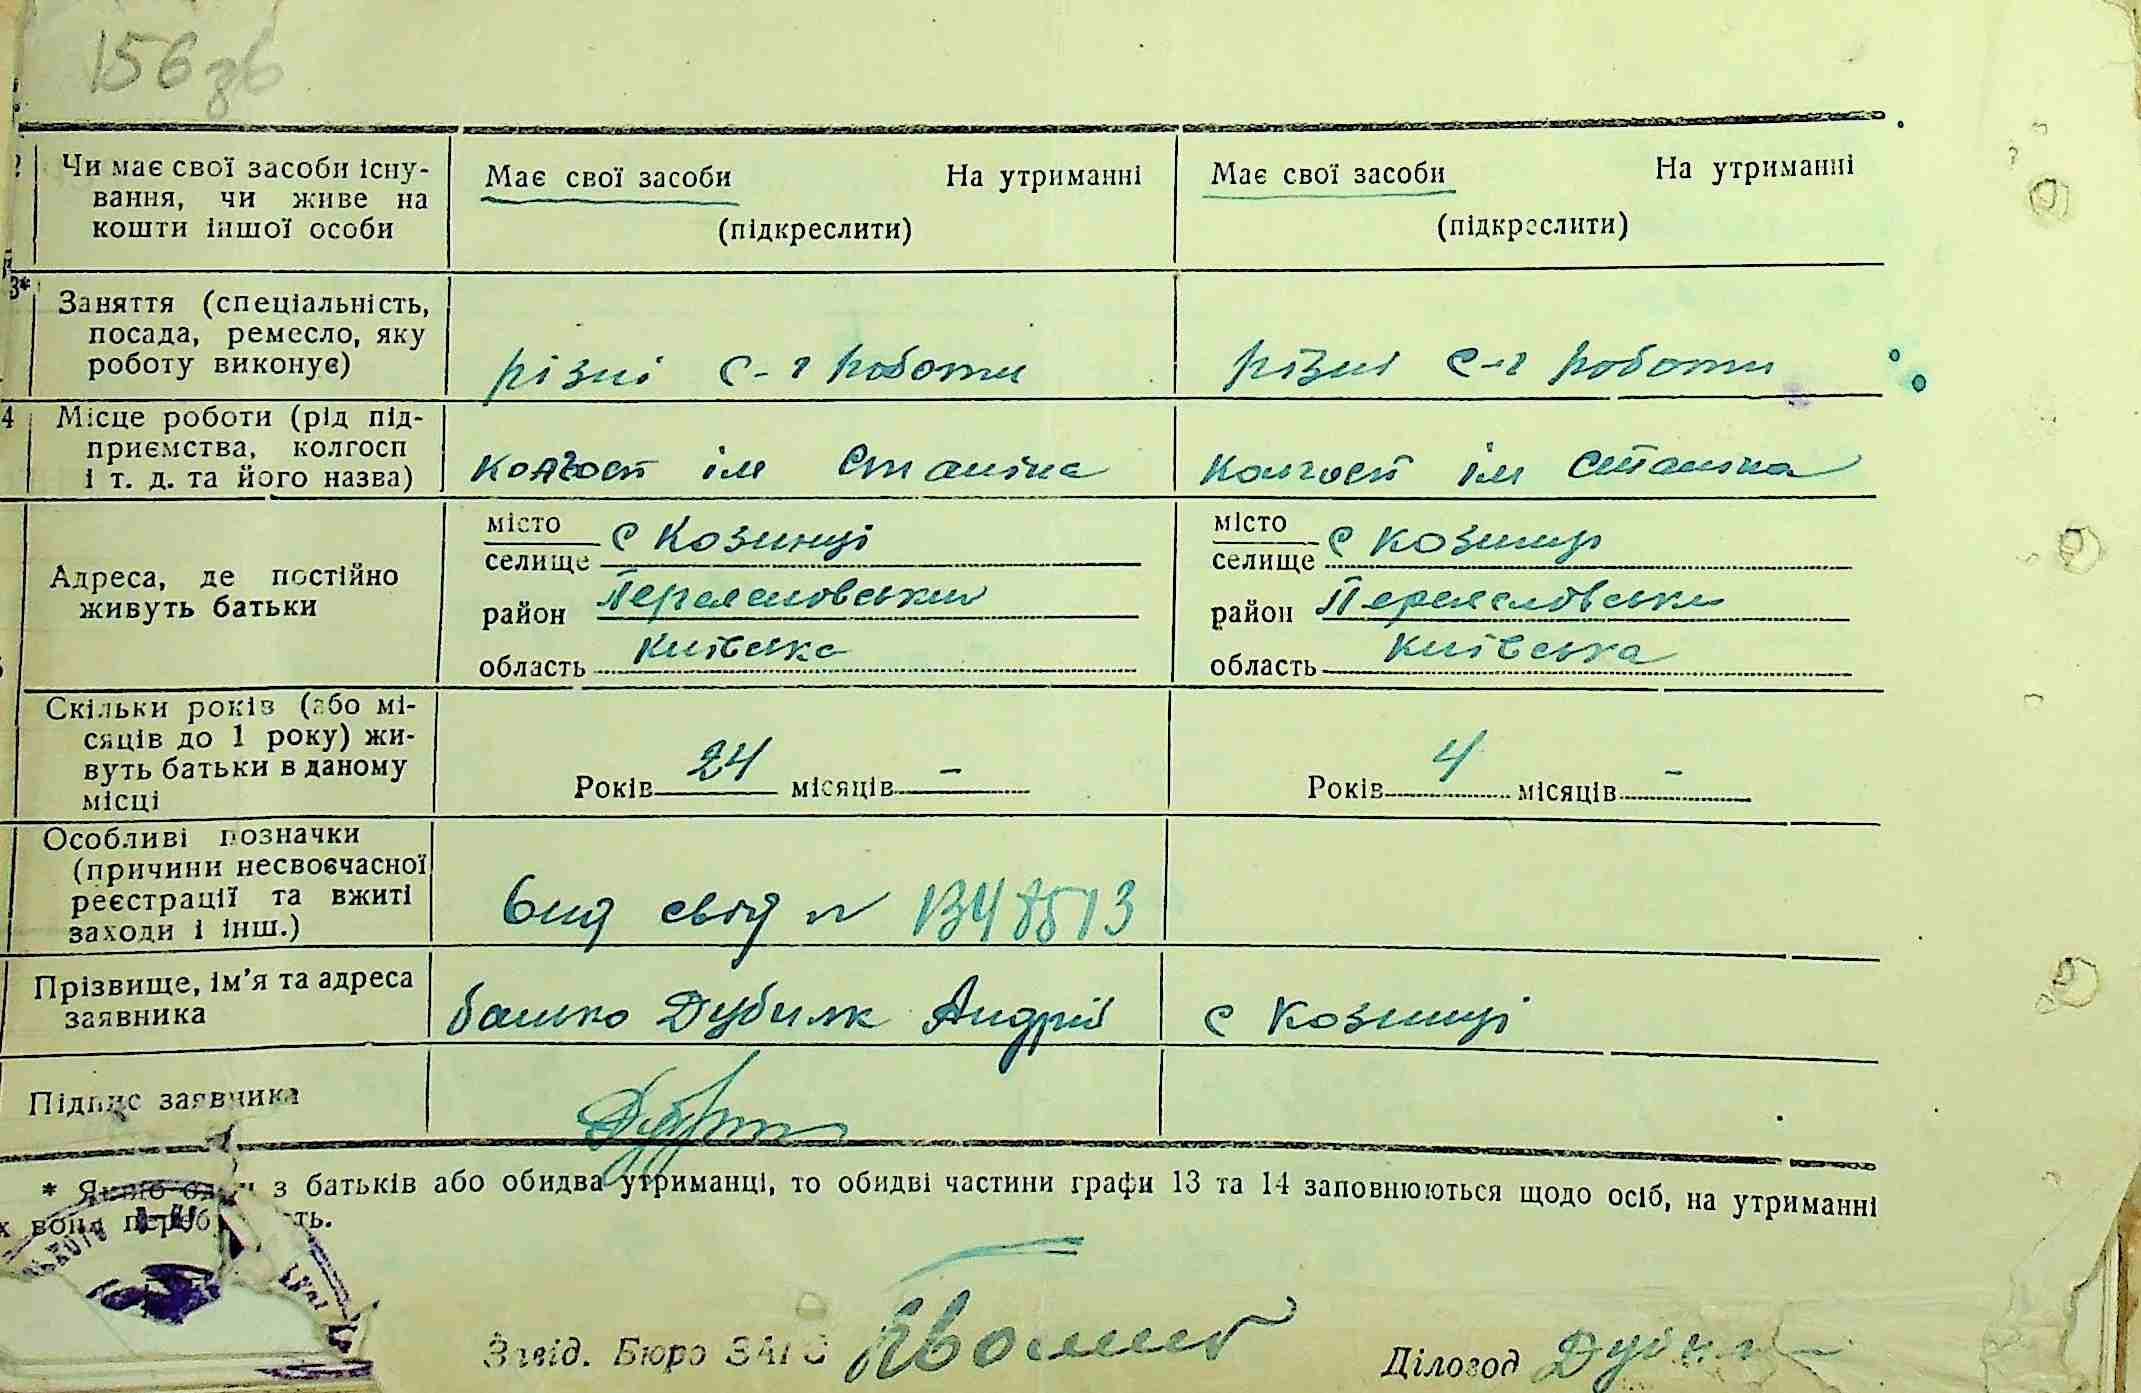 156 зв
Чи має свої засоби існу-
вання, чи живе на
кошти іншої особи
Має свої засоби На утриманні
(підкреслити)
Має свої засоби На утриманні
(підкреслити)
3*
Заняття (спеціальність,
посада, ремесло, яку
роботу виконує)
різні с-г роботи
різні с-г роботи
4
Місце роботи (рід під-
приємства, колгосп
і т. д. та його назва)
колгосп ім Сталіна
колгосп ім Сталіна
Адреса, де постійно
живуть батьки
місто
селище с Козинці
район Переяславський
область Київська
місто
селище с Козинці
район Переяславськи
область Київська
Скільки років (або мі-
сяців до 1 року) жи-
вуть батьки в даному
місці
Років 24 місяців -
Років 4 місяців -
Особливі позначки
(причини несвоєчасної
реєстрації та вжиті
заходи і інш.)
вид свід n 1348513
Прізвище, ім'я та адреса
заявника
батько Дубиля Андрій
с Козинці
Підпис заявника
* Якщо один з батьків або обидва утриманці, то обидві частини графи 13 та 14 заповнюються щодо осіб, на утриманні
вони
Завід. Бюро ЗАГС
Діловод